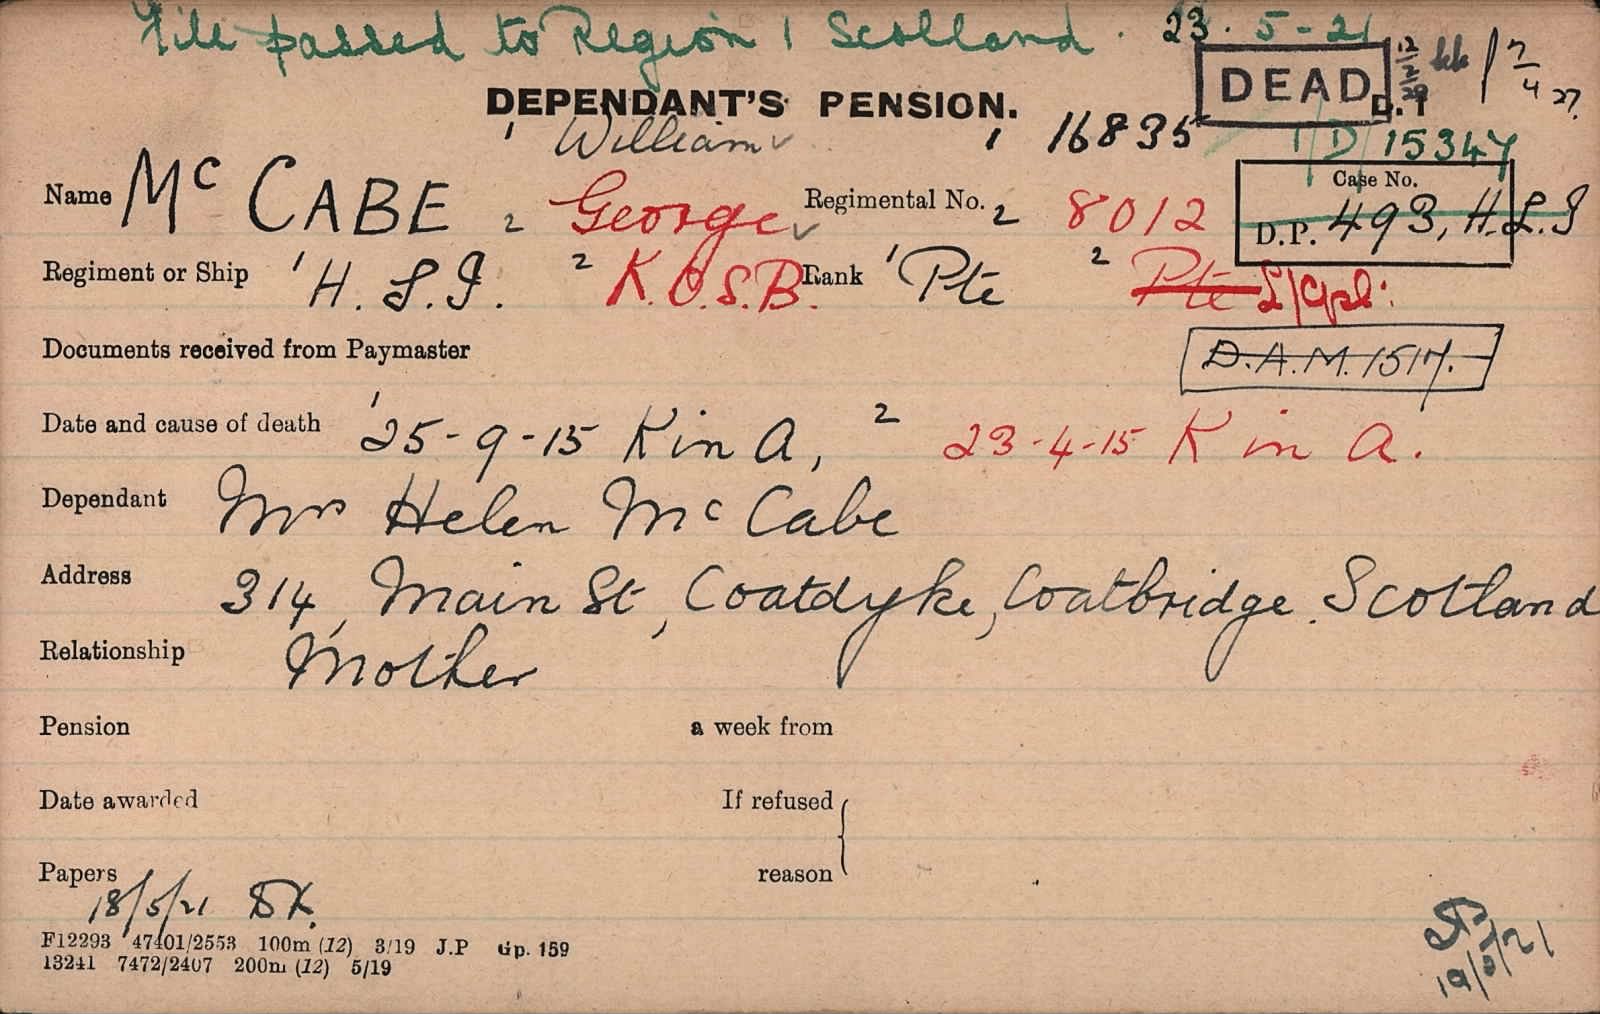 File passed to Region 1 Scotland. 23.5-21
DEAD 12/2/29 1 7/4 27.
DEPENDANT'S PENSION. D. 1
1 William 1 16835 1/D/15347
Name McCABE 2 George Regimental No. 2 8012 Case No.
D.P. 493, H.L.I
Regiment or Ship 1 H.L.I. 2 K.O.S.B. Rank 1 Pte 2 Pte L/Cpl:
Documents received from Paymaster D.A.M. 1517.
Date and cause of death 1 25-9-15 K in A, 2 23-4-15 K in A.
Dependant Mrs Helen McCabe
Address 314, Main St, Coatdyke, Coatbridge. Scotland
Relationship Mother
Pension a week from
Date awarded If refused
Papers reason
18/5/21
F12293 47401/2553 100m (12) 3/19 J.P Gp. 159
13241 7472/2407 200m (12) 5/19
19/5/21